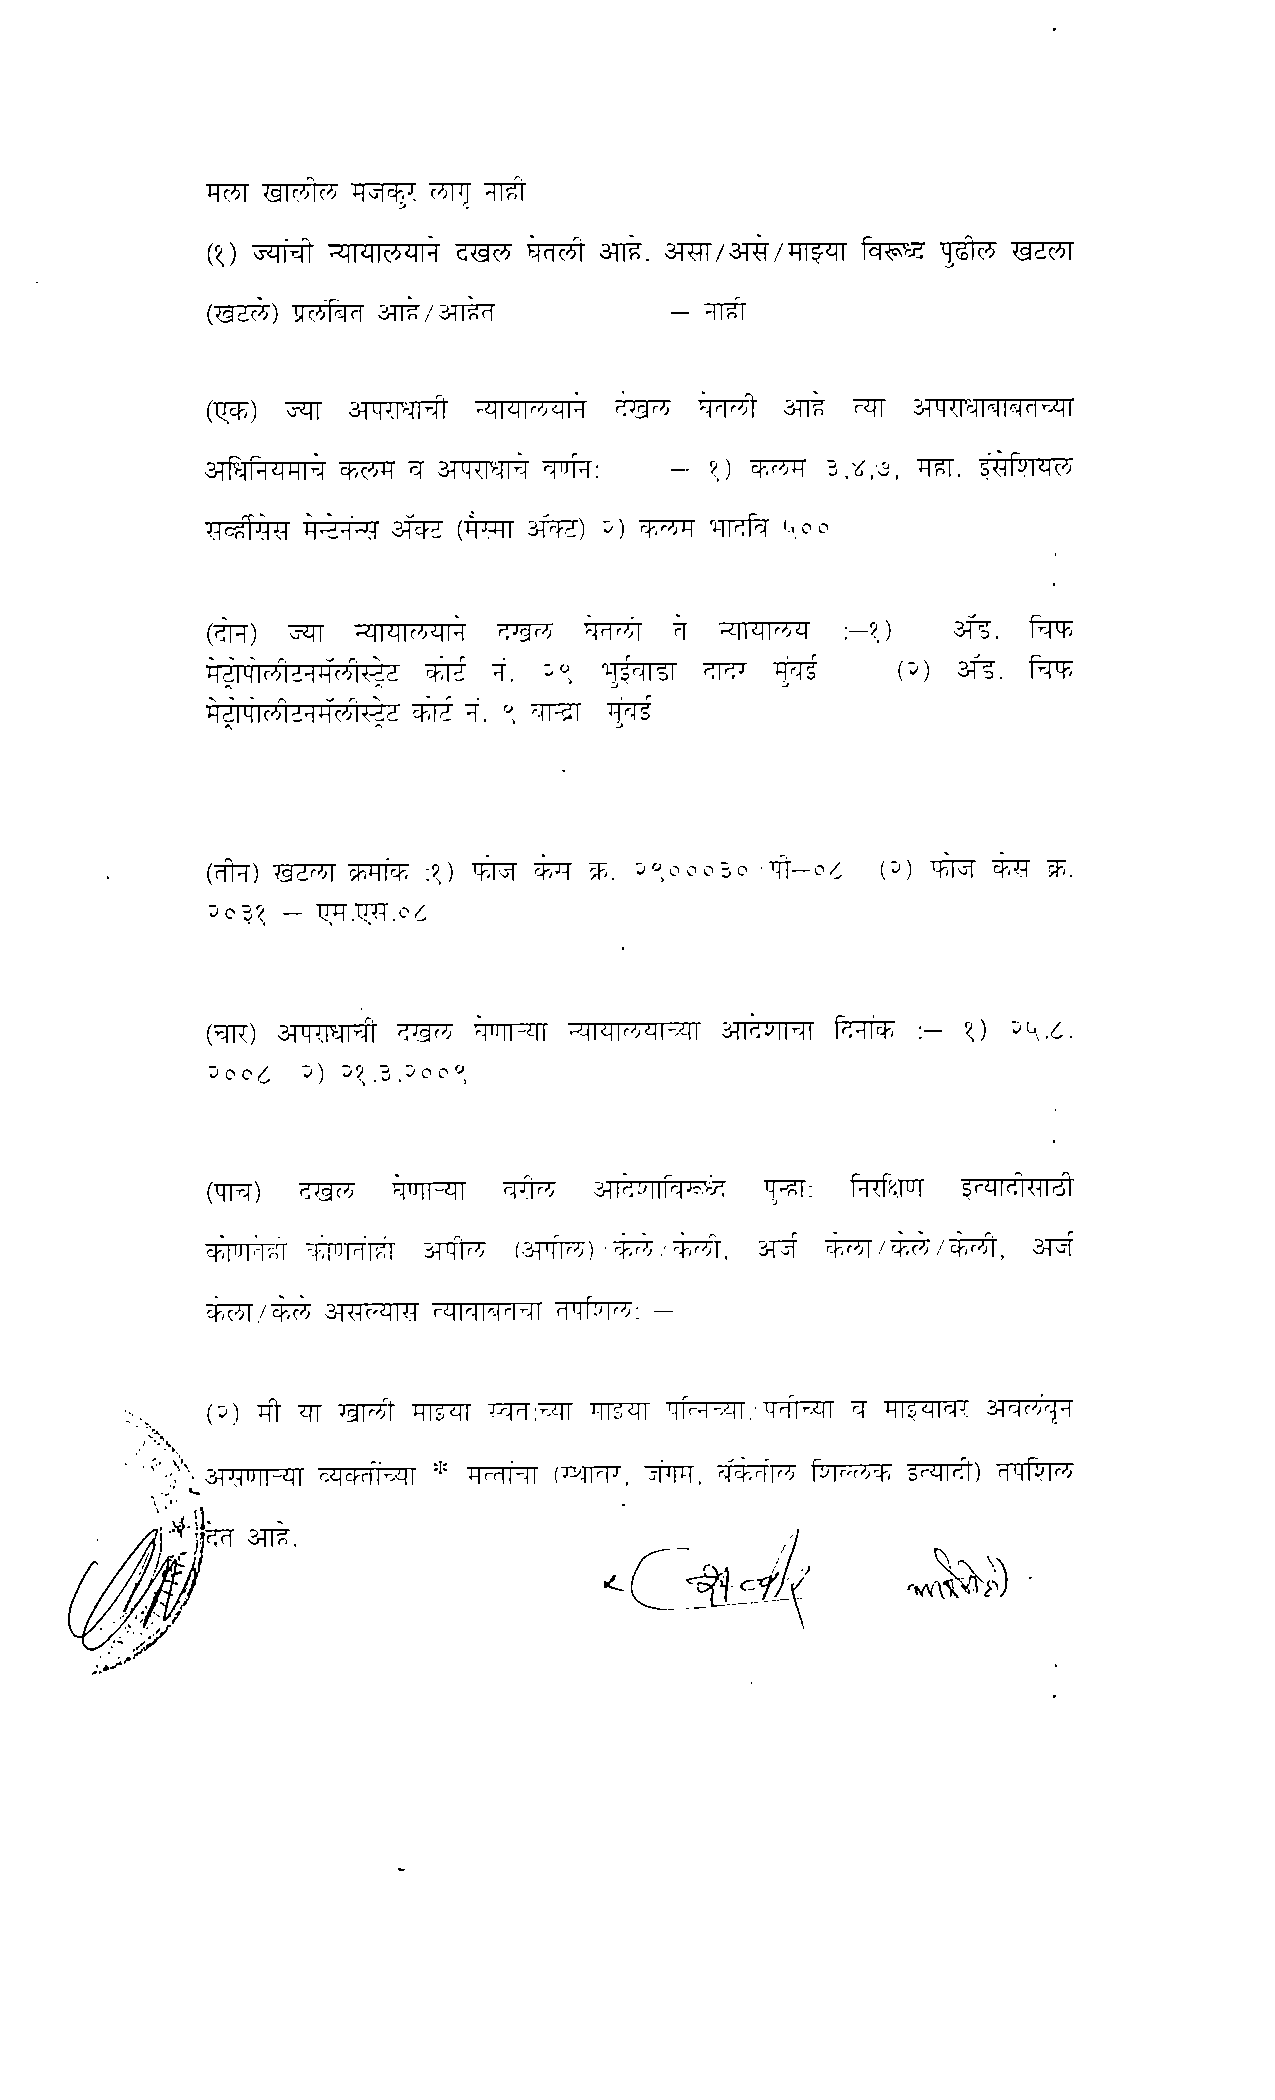 मला खालील मजकुर लागू नाही
(१) ज्यांची न्यायालयाने दखल घेतली आहे. असा/असे/माझ्या विरूध्द पुढील खटला
(खटले) प्रलंबित आहे/आहेत – नाही
(एक) ज्या अपराधाची न्यायालयाने देखल घेतली आहे त्या अपराधाबाबतच्या
अधिनियमाचे कलम व अपराधाचे वर्णन: – १) कलम ३,४,७, महा. इंसेशियल
सर्व्हीसेस मेन्टेनंन्स अ‍ॅक्ट (मैस्मा अ‍ॅक्ट) २) कलम भादवि ५००
(दोन) ज्या न्यायालयाने दखल घेतली ते न्यायालय :–१) अ‍ॅड. चिफ
मेट्रोपोलीटनमॅलीस्ट्रेट कोर्ट नं. २९ भुईवाडा दादर मुंबई (२) अ‍ॅड. चिफ
मेट्रोपोलीटनमॅलीस्ट्रेट कोर्ट नं. ९ बान्द्रा मुंबई
(तीन) खटला क्रमांक :१) फोज केस क्र. २९०००३० पी–०८ (२) फोज केस क्र.
२०३१ – एम.एस.०८
(चार) अपराधाची दखल घेणाऱ्या न्यायालयाच्या आदेशाचा दिनांक :– १) २५.८.
२००८ २) २१.३.२००९
(पाच) दखल घेणाऱ्या वरील आदेशाविरूध्द पुन्हा: निरक्षिण इत्यादीसाठी
कोणतेही कोणतीही अपील (अपील) केले/केली, अर्ज केला/केले/केली, अर्ज
केला/केले असल्यास त्याबाबतचा तपशिल: –
(२) मी या खाली माझ्या स्वत:च्या माझ्या पत्निच्या/पतीच्या व माझ्यावर अवलंबून
असणाऱ्या व्यक्तींच्या * मत्तांचा (स्थावर, जंगम, बँकेतील शिल्लक इत्यादी) तपशिल
देत आहे.